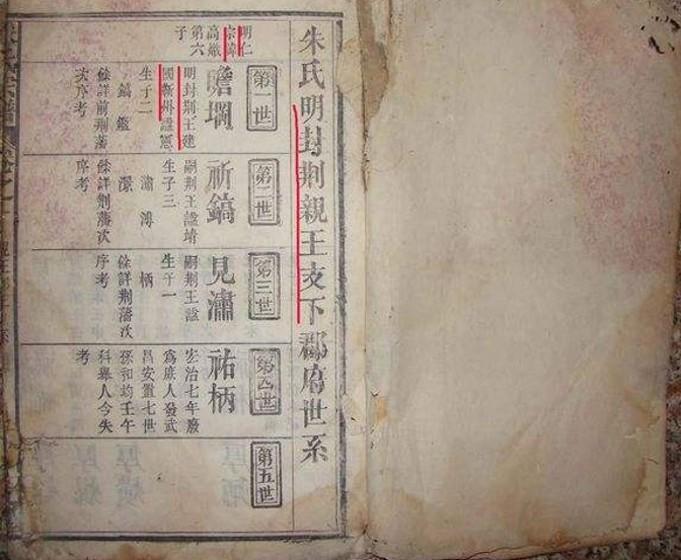 朱氏明封荆親王支下郡府世系
第一世
明仁
宗諱
高熾
第六
子
瞻堈
明封荆王建
國蘄州諡憲
生子二
鎬 鑑
餘詳前荆藩
次序考
第二世
祈鎬
嗣荆王諡靖
生子三
潚 溥
㵂
餘詳荆藩次
序考
第三世
見潚
嗣荆王諡
生子一
柄
餘詳荆藩次
序考
第四世
祐柄
宏治七年廢
爲庶人發武
昌安置七世
孫和均壬午
科舉人今失
考
第五世